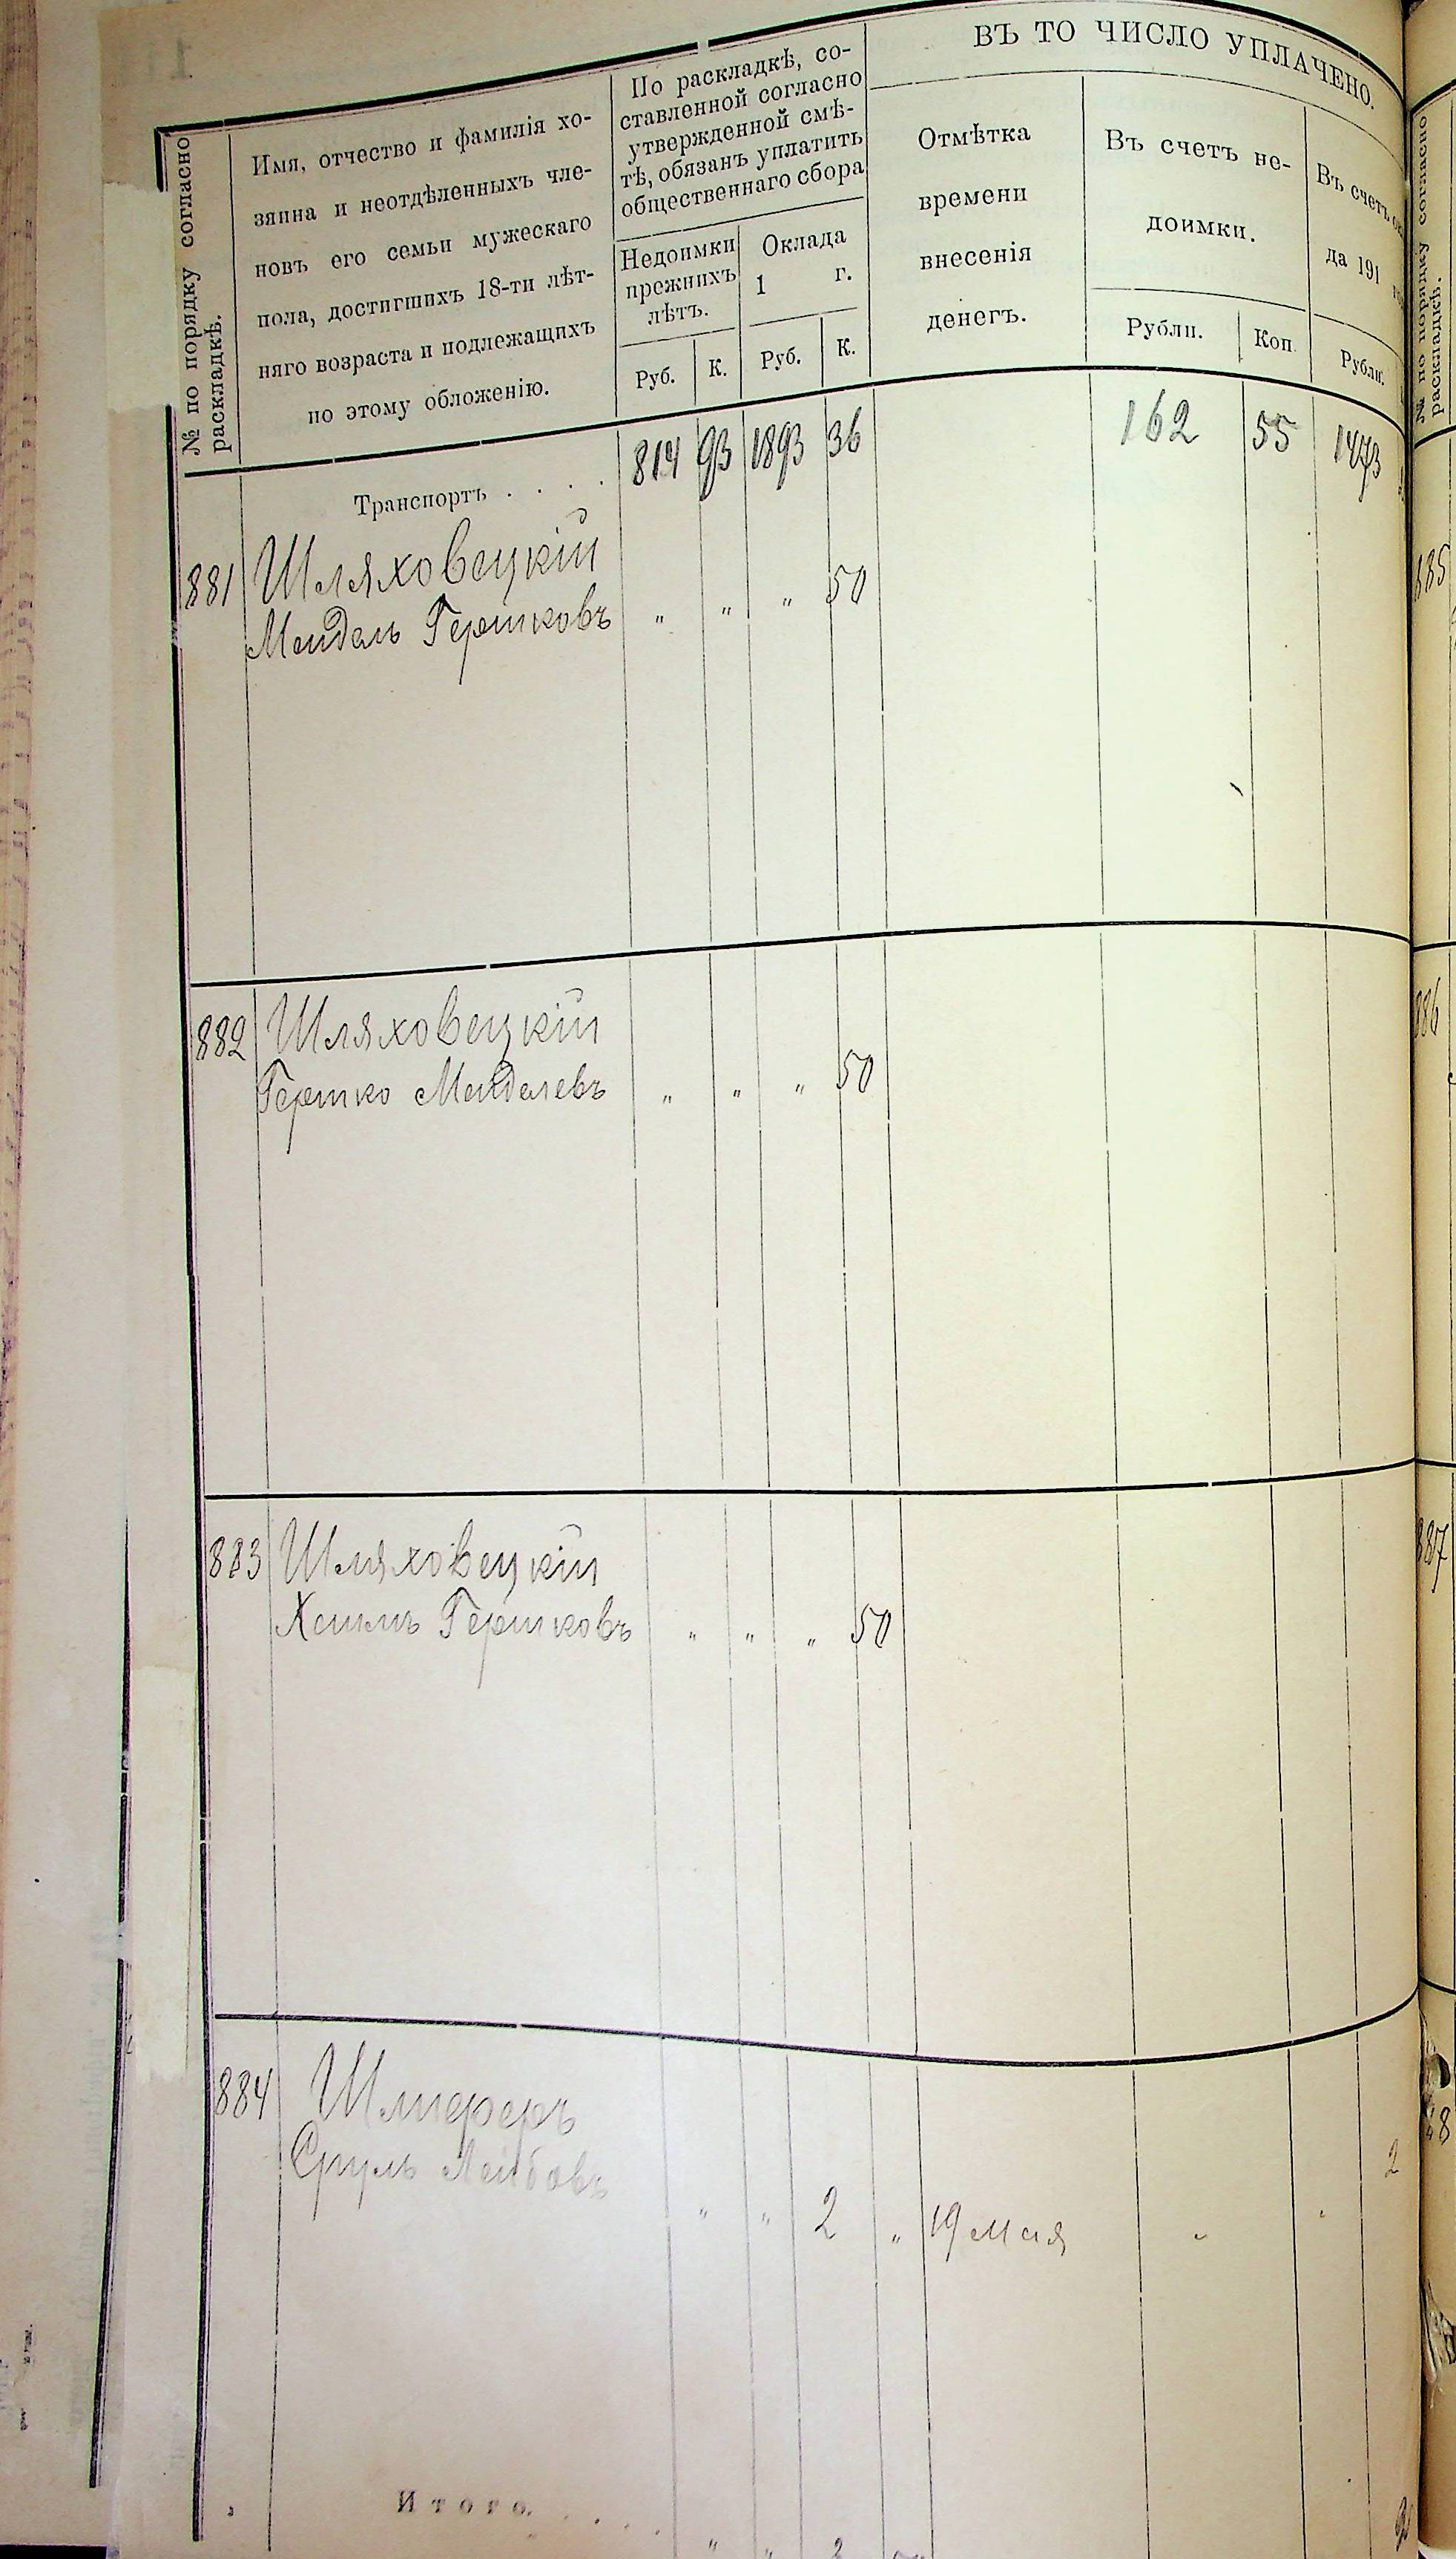 ВЪ ТО ЧИСЛО УПЛАЧЕНО.
№ по порядку согласно
раскладкѣ.
Имя, отчество и фамилія хо-
зяина и неотдѣленныхъ чле-
новъ его семьи мужескаго
пола, достигшихъ 18-ти лѣт-
няго возраста и подлежащихъ
по этому обложенію.
По раскладкѣ, со-
ставленной согласно
утвержденной смѣ-
тѣ, обязанъ уплатить
общественнаго сбора
Недоимки
прежнихъ
лѣтъ.
Оклада
1 г.
Руб. К. Руб. К.
Отмѣтка
времени
внесенія
денегъ.
Въ счетъ не-
доимки.
Рубли. Коп.
Въ счетъ
да 191
Рубли.
№ по порядку согласно
раскладкѣ.
Транспортъ . . . . 814 93 1893 36 162 55 1473
881 Шляховецкій
Мендель Гершковъ " " " 50
885
882 Шляховецкій
Гершко Менделевъ " " " 50
886
883 Шляховецкій
Хаимъ Гершковъ " " " 50
887
884 Шлиферъ
Сруль Лейбовъ
" " 2 " 19 мая " " 2
Итого. . . . .
" " 2